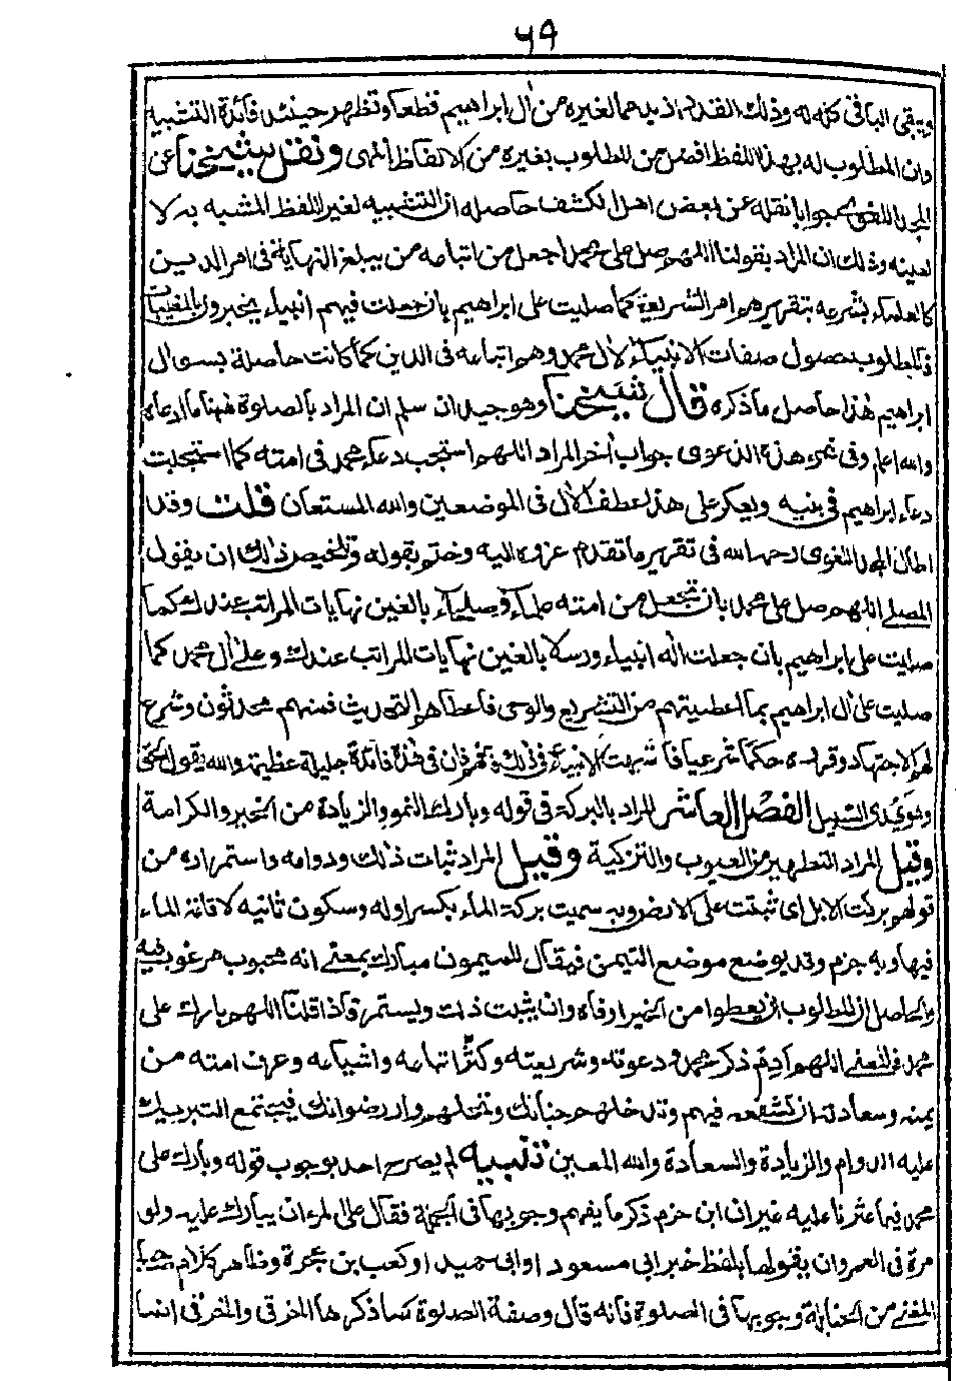 ٦٩
ويبقى الباقى كله له وذلك القدر ازيد مما لغيره من اٰل ابراهيم قطعا وتظهر حينئذ فائدة التشبيه
وان المطلوب له بهذا اللفظ افضل من المطلوب بغيره من الالفاظ انتهى ونقل شيخنا عن
المجد اللغوى جوابا نقله عن بعض اهل الكشف حاصله ان التشبيه لغير اللفظ المشبه به لا
لعينه وذلك ان المراد بقولنا اللهم صل على محمد اجعل من اتباعه من يبلغ النهاية فى امر الدين
كالعلماء بشرعه بتقريرهم امر الشريعة كما صليت على ابراهيم بان جعلت فيهم انبياء يخبرون بالمغيبات
فالمطلوب حصول صفات الانبياء لاٰل محمد وهو اتباعه فى الدين كما كانت حاصلة بسوال
ابراهيم هذا حاصل ما ذكره قال شيخنا وهو جيد ان سلم ان المراد بالصلوة ههنا ما ادعاه
والله اعلم وفى نحو هذه الدعوى جواب اٰخر المراد اللهم استجب دعاء محمد فى امته كما استجبت
دعاء ابراهيم فى بنيه ويعكر على هذا عطف الاٰل فى الموضعين والله المستعان قلت وقد
اطال المجد اللغوى رحمه الله فى تقرير ما تقدم عزوه اليه وختم بقوله وتلخيص ذلك ان يقول
المصلى اللهم صل على محمد بان تجعل من امته علماء وصلحاء بالغين نهايات المراتب عندك كما
صليت على ابراهيم بان جعلت اٰله انبياء ورسلا بالغين نهايات المراتب عندك وعلى اٰل محمد كما
صليت على اٰل ابراهيم بما اعطيتهم من التشريع والوحى فاعطاهم التحديث فمنهم محدثون وشرع
لهم الاجتهاد وقرره حكما شرعيا فاشبهت الانبياء فى ذلك فان فى هذه فائدة جليلة عظيمة والله يقول الحق
وهو يهدى السبيل الفصل العاشر المراد بالبركة فى قوله وبارك النمو والزيادة من الخير والكرامة
وقيل المراد التطهير من العيوب والتزكية وقيل المراد ثبات ذلك ودوامه واستمراره من
قولهم بركت الابل اى ثبتت على الارض وبه سميت بركة الماء بكسر اوله وسكون ثانيه لاقامة الماء
فيها وبه جزم وقد يوضع موضع التيمن فيقال للميمون مبارك بمعنى انه محبوب مرغوب فيه
والحاصل ان المطلوب ان يعطوا من الخير اوفاه وان يثبت ذلك ويستمر فاذا قلنا اللهم بارك على
محمد فالمعنى اللهم ادم ذكر محمد ودعوته وشريعته وكثر اتباعه واشياعه وعرف امته من
يمنه وسعادته ان تشفعه فيهم وتدخلهم جنانك وتحلهم دار رضوانك فيجتمع التبريك
عليه الدوام والزيادة والسعادة والله المعين تنبيه لم يصرح احد بوجوب قوله وبارك على
محمد فيما عثرنا عليه غير ان ابن حزم ذكر ما يفهم وجوبها فى الجملة فقال على المرء ان يبارك عليه ولو
مرة فى العمر وان يقولها بلفظ خبر ابى مسعود او ابى حميد او كعب بن عجرة وظاهر كلام صاحب
المغنى من الحنابلة وجوبها فى الصلوة فانه قال وصفة الصلوة كما ذكرها الخرقى والخرقى انما